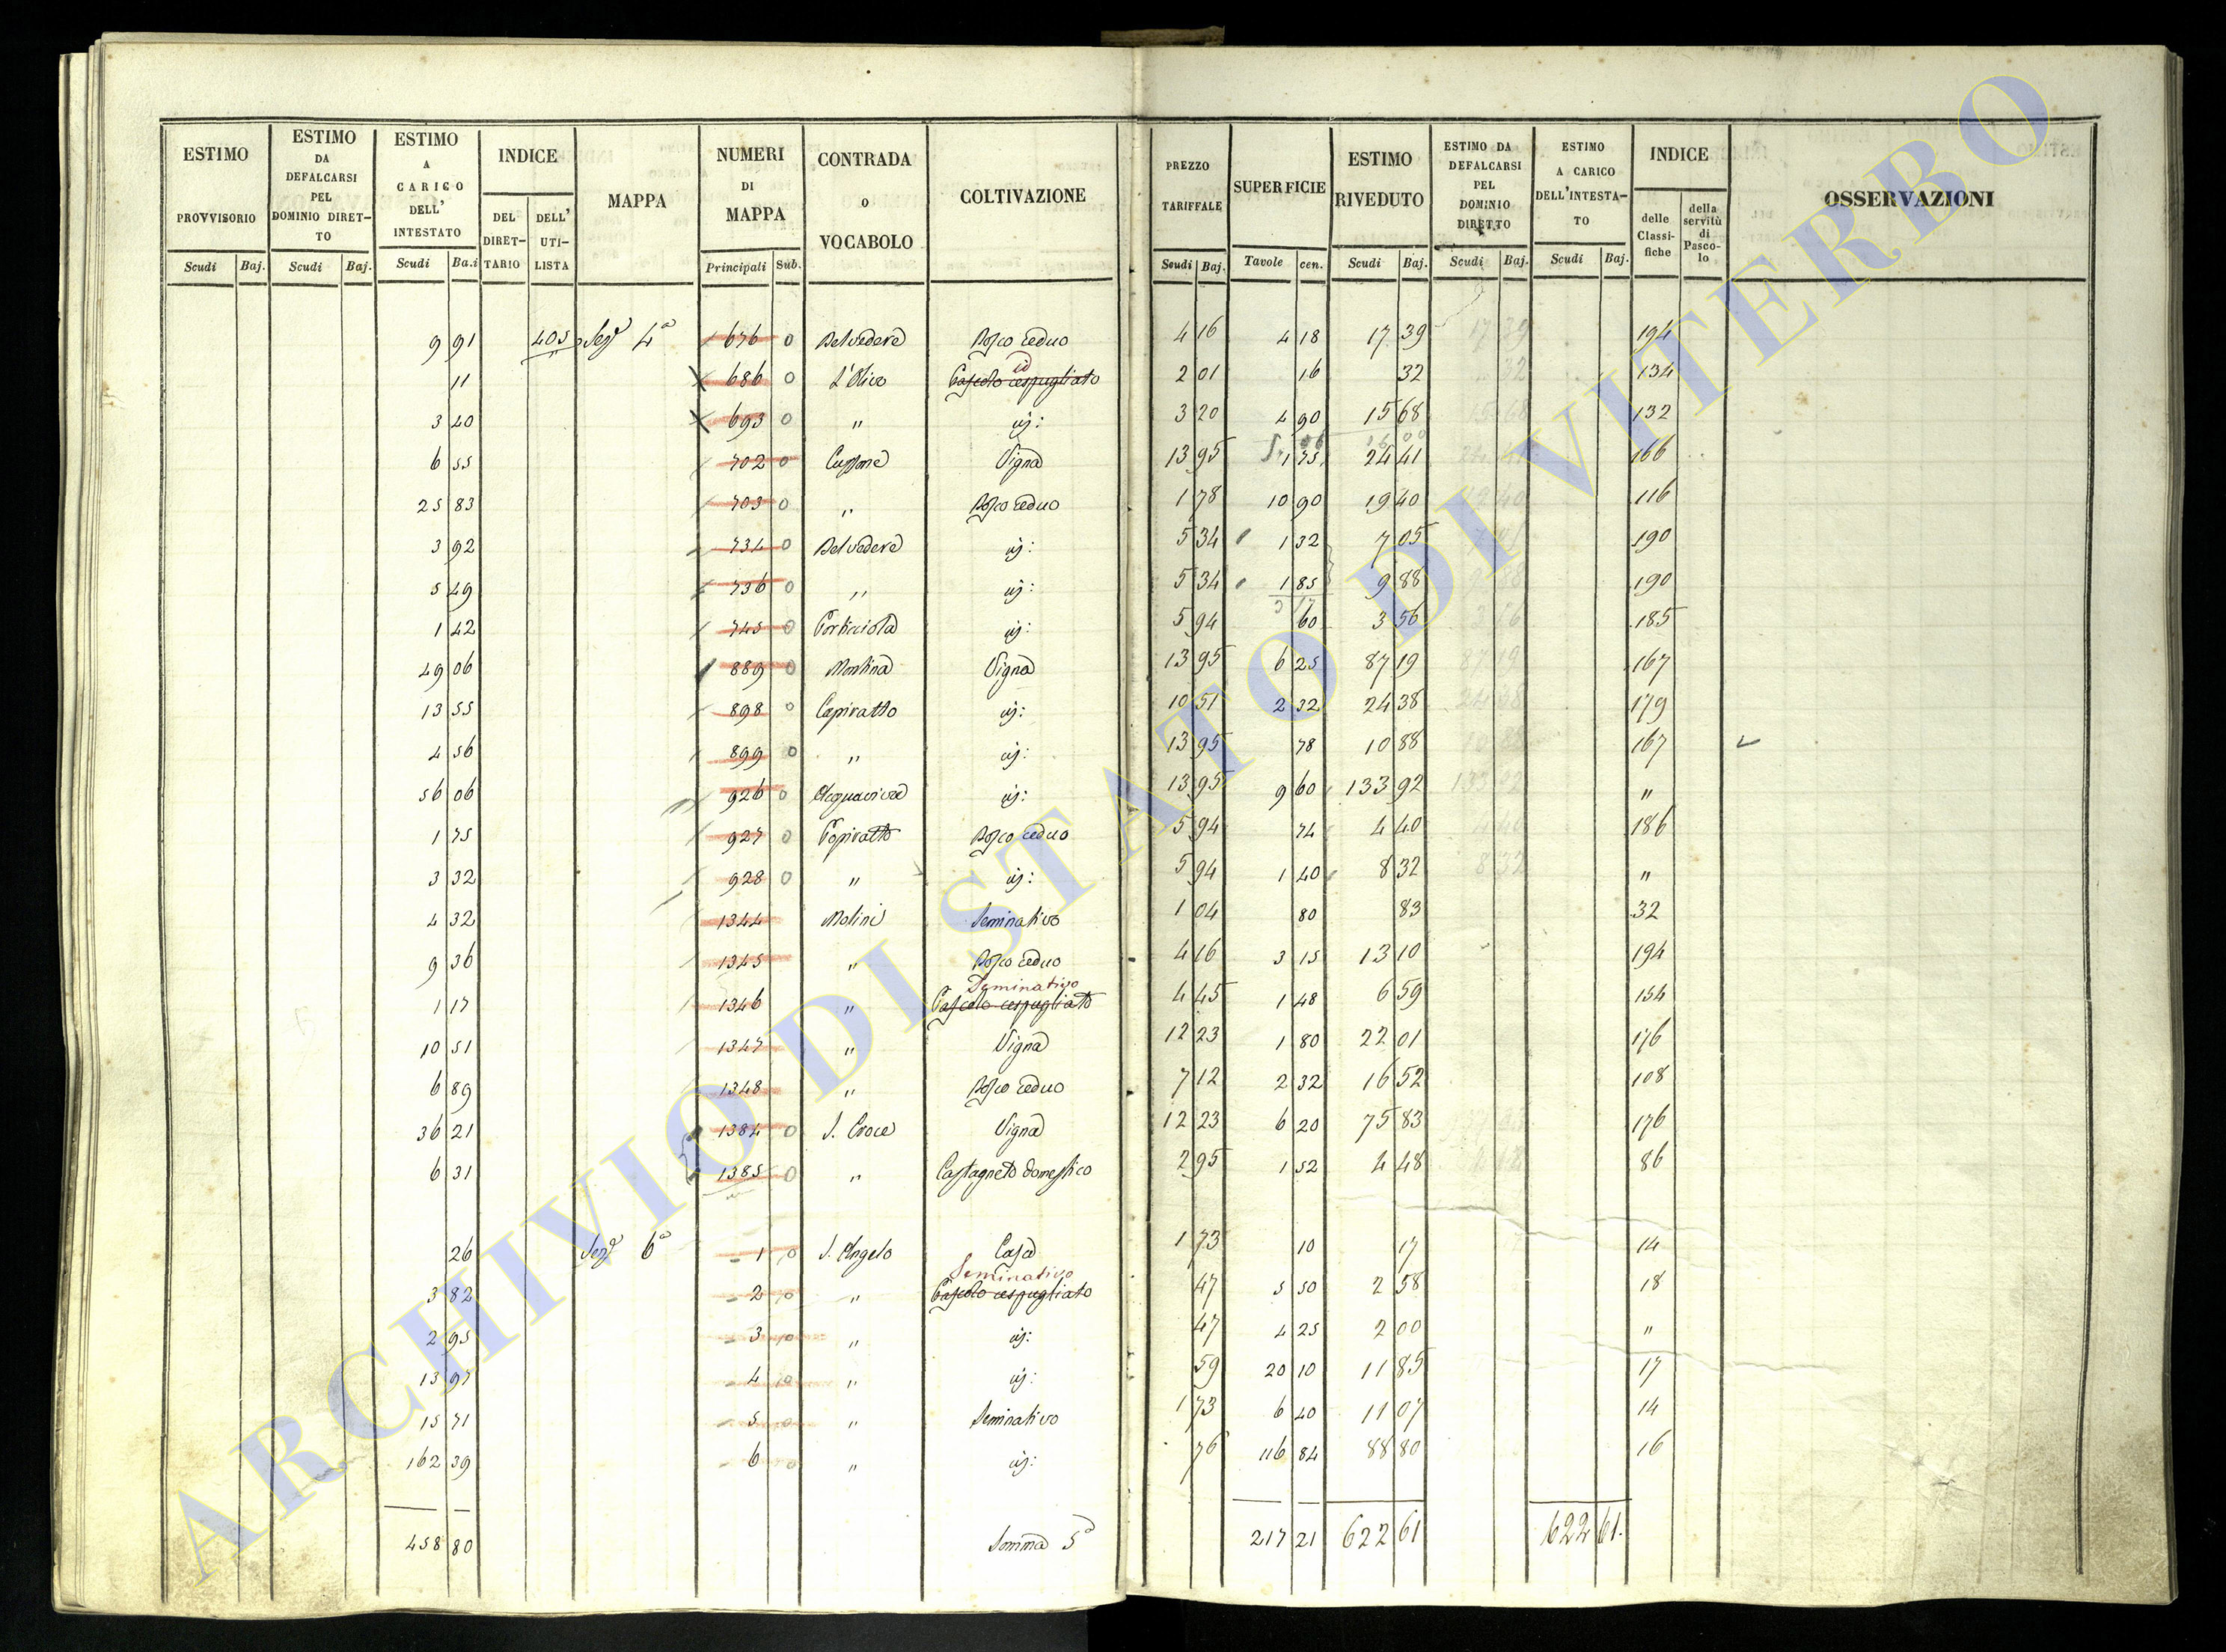 ESTIMO PROVVISORIO Scudi Baj.
ESTIMO DA DEFALCARSI PEL DOMINIO DIRET-TO Scudi Baj.
ESTIMO A CARICO DELL' INTESTATO Scudi Ba.i
INDICE DEL DIRET-TARIO DELL' UTI-LISTA
MAPPA
NUMERI DI MAPPA Principali Sub.
CONTRADA O VOCABOLO
COLTIVAZIONE
PREZZO TARIFFALE Scudi Baj.
SUPERFICIE Tavole cen.
ESTIMO RIVEDUTO Scudi Baj.
ESTIMO DA DEFALCARSI PEL DOMINIO DIRETTO Scudi Baj.
ESTIMO A CARICO DELL'INTESTA-TO Scudi Baj.
INDICE delle Classi-fiche della servitù di Pasco-lo
OSSERVAZIONI
9 91 405 Sez.e 4a 676 0 Belvedere Bosco ceduo 4 16 4 18 17 39 17 39 194
11 686 0 L'Olivo Pascolo cespugliato id 2 01 16 32 32 134
3 40 693 0 " id: 3 20 4 90 15 68 15 68 132
6 55 702 0 Vigna 13 95 1 75 24 41 166
25 83 703 0 " Bosco ceduo 1 78 10 90 19 40 19 40 116
3 92 734 0 Belvedere id: 5 34 1 32 7 05 190
5 49 736 0 " id: 5 34 1 85 9 88 9 88 190
1 42 745 0 Porticciola id: 5 94 60 3 56 3 56 185
49 06 889 0 Vigna 13 95 6 25 87 19 87 19 167
13 55 898 0 Capiratto id: 10 51 2 32 24 38 24 38 179
4 56 899 0 " id: 13 95 78 10 88 10 88 167
56 06 926 0 Acquaviva id: 13 95 9 60 133 92 133 92 "
1 75 927 0 Capiratto Bosco ceduo 5 94 74 4 40 4 40 186
3 32 928 0 " id: 5 94 1 40 8 32 8 32 "
4 32 1344 Molini Seminativo 1 04 80 83 32
9 36 1345 " Bosco ceduo 4 16 3 15 13 10 194
1 17 1346 " Pascolo cespugliato Seminativo 4 45 1 48 6 59 154
10 51 1347 " Vigna 12 23 1 80 22 01 176
6 89 1348 " Bosco ceduo 7 12 2 32 16 52 108
36 21 1384 0 S. Croce Vigna 12 23 6 20 75 83 176
6 31 1385 0 " Castagneto domestico 2 95 1 52 4 48 86
26 Sez.e 6a 1 0 S. Angelo Casa 1 73 10 17 14
3 82 2 0 " Pascolo cespugliato Seminativo 47 5 50 2 58 18
2 95 3 0 " id: 47 4 25 2 00 "
13 97 4 0 " id: 59 20 10 11 85 17
15 71 5 0 " Seminativo 1 73 6 40 11 07 14
162 39 6 0 " id: 76 116 84 88 80 16
458 80 Somma 5a 217 21 622 61 622 61.
ARCHIVIO DI STATO DI VITERBO